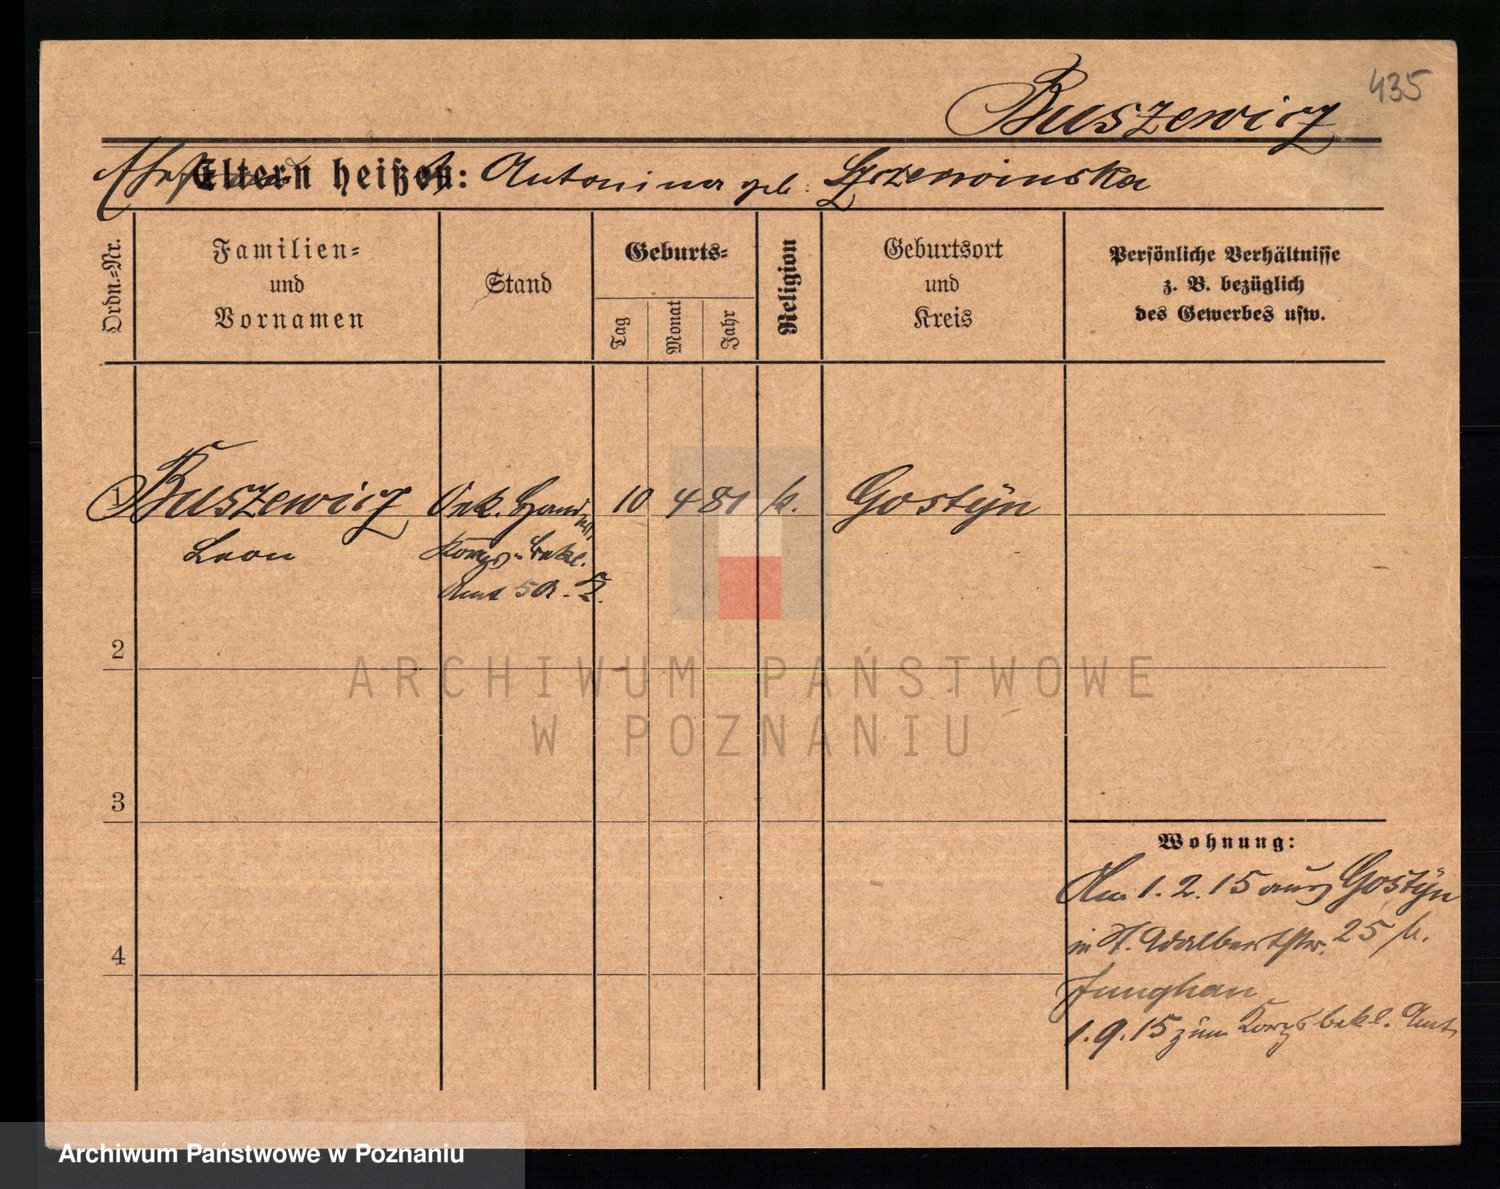 435
Buszewicz
Eltern heißen: Antonina geb.
Ordn.-Nr.
Familien-
und
Vornamen
Stand
Geburts-
Tag
Monat
Jahr
Religion
Geburtsort
und
Kreis
Persönliche Verhältnisse
z. B. bezüglich
des Gewerbes usw.
1 Buszewicz 10 4 81 k. Gostÿn
Leon
Amt 5 A. K.
2
ARCHIWUM PAŃSTWOWE
W POZNANIU
3
Wohnung:
Am 1.2.15 aus Gostÿn
in St. Adalbertstr. 25 b.
Junghan
4
1.9.15 zum Korpsbekl. Amt
Archiwum Państwowe w Poznaniu